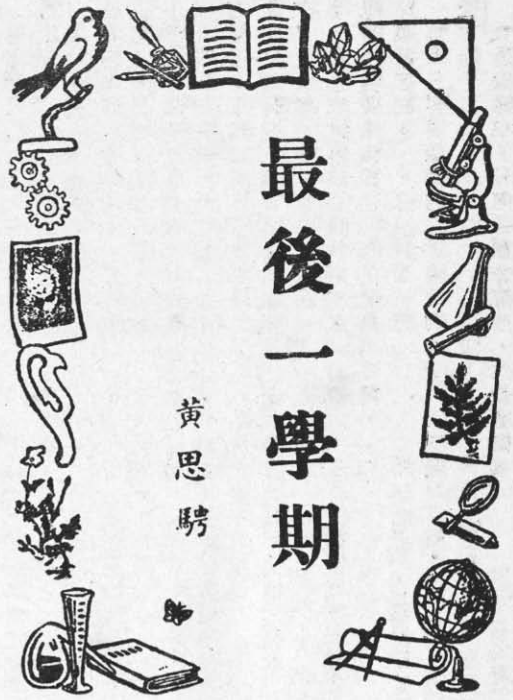 最後一學期
黃思騁